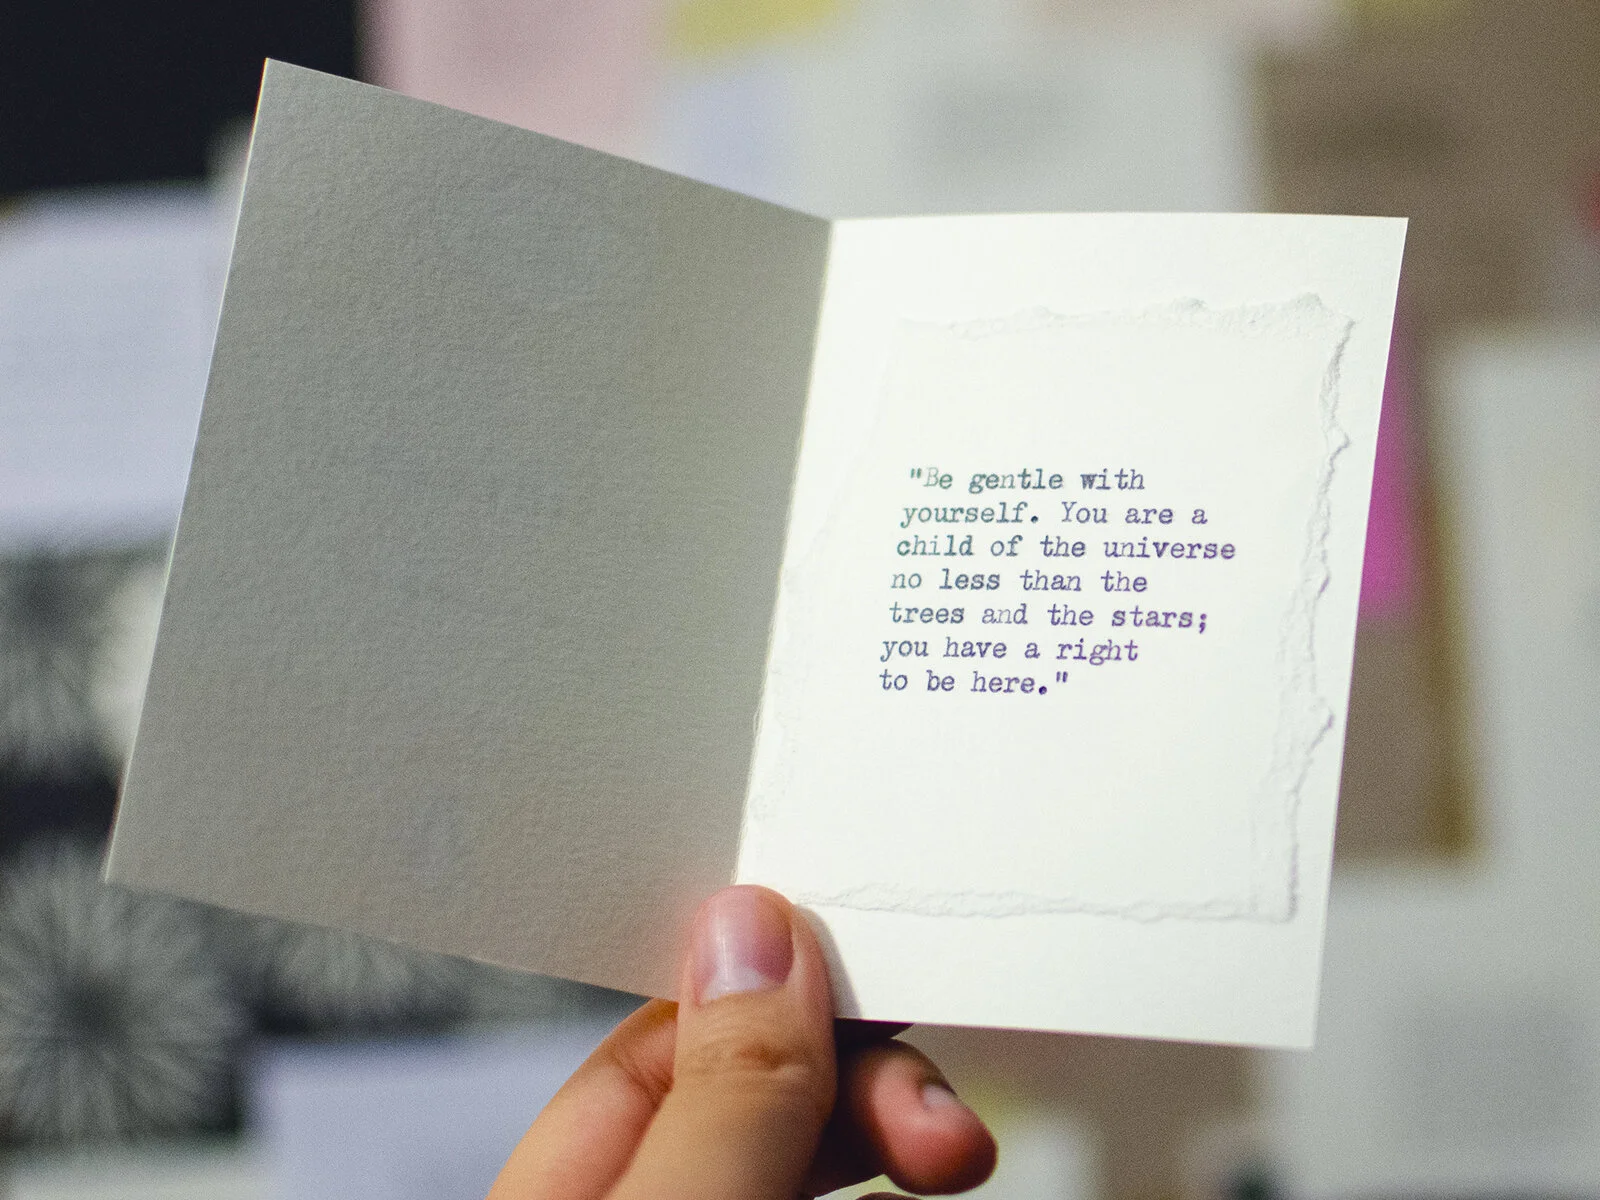 "Be gentle with
yourself. You are a
child of the universe
no less than the
trees and the stars;
you have a right
to be here."